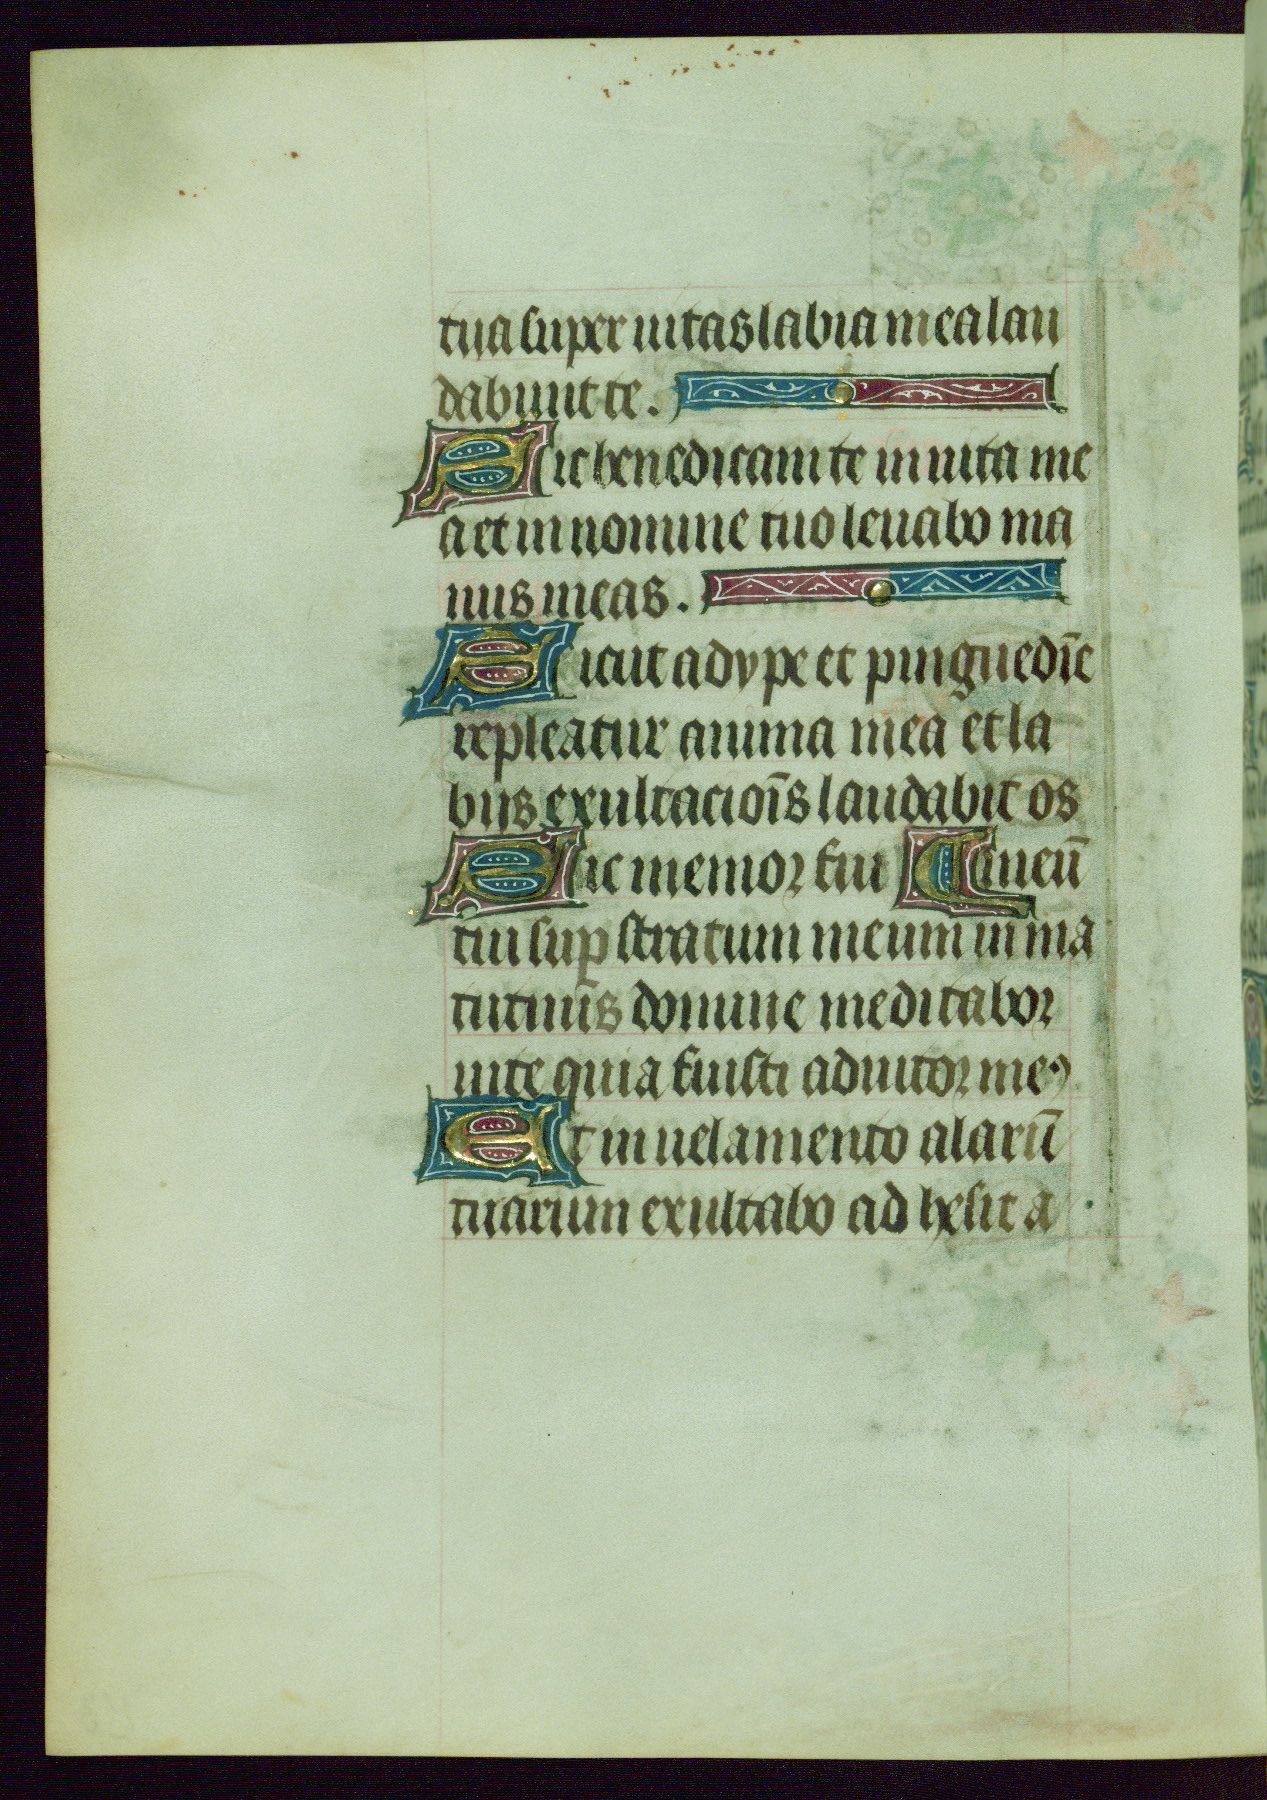 tua super uitas labia mea lau
dabunt te.
Sic benedicam te in uita me
a et in nomine tuo leuabo ma
nus meas.
Sicut adype et pinguedīe
repleatur anima mea et la
biis exultacioīs laudabit os
Sic memor fui ⸿ meū
tui sup stratum meum in ma
tutinīs domine meditabor
in te quia fuisti adiutor meꝰ
Et in uelamento alarū
tuarum exultabo ad hesit a